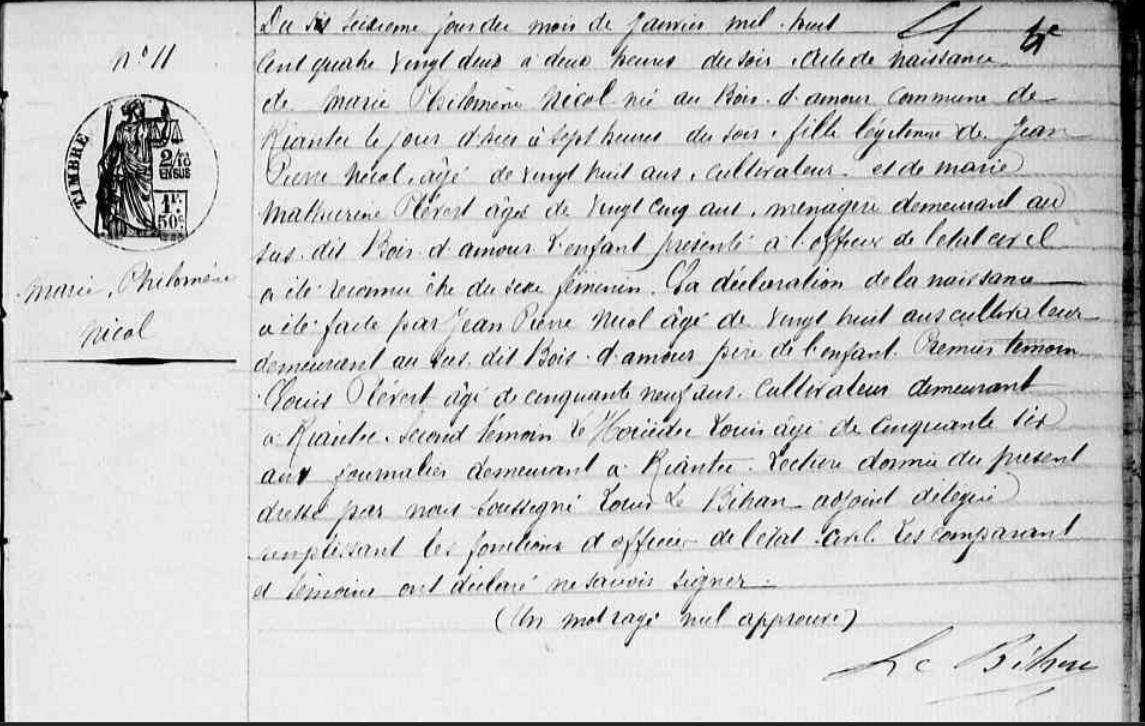 N° 11
TIMBRE
2/10
EN SUS
1F.
50c.
Marie, Philomène
Nicol
Du seizieme jour du mois de Janvier mil huit
Cent quatre Vingt deux a deux heures du soir Acte de naissance
de Marie Philomène Nicol né au Bois-d'amour Commune de
Riantec le jour d'hier à Sept heures du soir, fille légitime de Jean
Pierre Nicol, âgé de Vingt huit ans, cultivateur et de marie
Mathurine Plévert âgée de Vingt Cinq ans, ménagère demeurant au
sus-dit Bois-d'amour L'enfant présenté à l'officier de l'état civil
a été reconnu être du sexe féminin. La déclaration de la naissance
a été faite par Jean Pierre Nicol âgé de Vingt huit ans cultivateur
demeurant au sus-dit Bois-d'amour père de l'enfant. Premier temoin
Louis Plévert âgé de cinquante neuf ans. Cultivateur demeurant
a Riantec. Second témoin Le Louis âgé de Cinquante six
ans journalier demeurant a Riantec. Lecture donnée du présent
dressé par nous Soussigné Louis Le Bihan adjoint délégué
remplissant les fonctions d'officier de l'état civil. Les comparant
et témoins ont déclaré ne savoir signer.
(Un mot rayé nul approuvé)
Le Bihan